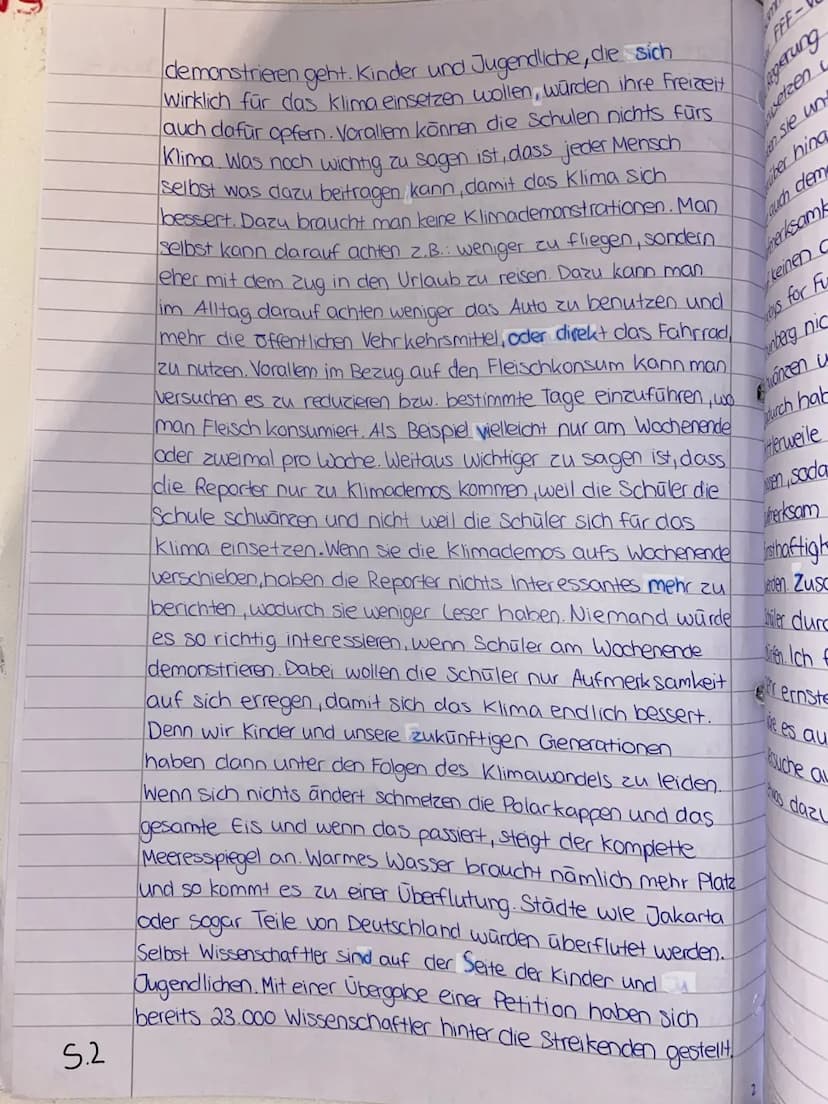 demonstrieren geht. Kinder und Jugendliche, die sich
wirklich für das Klima einsetzen wollen, würden ihre Freizeit
auch dafür opfern. Vorallem können die Schulen nichts fürs
Klima. Was noch wichtig zu sagen ist, dass jeder Mensch
selbst was dazu beitragen kann, damit das Klima sich
bessert. Dazu braucht man keine Klimademonstrationen. Man
selbst kann darauf achten z.B.: weniger zu fliegen, sondern
eher mit dem Zug in den Urlaub zu reisen. Dazu kann man
im Alltag darauf achten weniger das Auto zu benutzen und
mehr die öffentlichen Vehrkehrsmittel, oder direkt das Fahrrad
zu nutzen. Vorallem im Bezug auf den Fleischkonsum kann man
versuchen es zu reduzieren bzw. bestimmte Tage einzuführen, wo
man Fleisch konsumiert. Als Beispiel vielleicht nur am Wochenende
oder zweimal pro Woche. Weitaus wichtiger zu sagen ist, dass
die Reporter nur zu Klimademos kommen, weil die Schüler die
Schule schwänzen und nicht weil die Schüler sich für das
Klima einsetzen. Wenn sie die Klimademos aufs Wochenende
verschieben, haben die Reporter nichts Interessantes mehr zu
berichten, wodurch sie weniger Leser haben. Niemand würde
es so richtig interessieren, wenn Schüler am Wochenende
demonstrieren. Dabei wollen die Schüler nur Aufmerksamkeit
auf sich erregen, damit sich das Klima endlich bessert.
Denn wir Kinder und unsere zukünftigen Generationen
haben dann unter den Folgen des Klimawandels zu leiden.
Wenn sich nichts ändert schmelzen die Polarkappen und das
gesamte Eis und wenn das passiert, steigt der komplette
Meeresspiegel an. Warmes Wasser braucht nämlich mehr Platz
und so kommt es zu einer Überflutung. Städte wie Jakarta
oder sogar Teile von Deutschland würden überflutet werden.
Selbst Wissenschaftler sind auf der Seite der Kinder und
Jugendlichen. Mit einer Übergabe einer Petition haben sich
bereits 23.000 Wissenschaftler hinter die Streikenden gestellt.
S.2
2